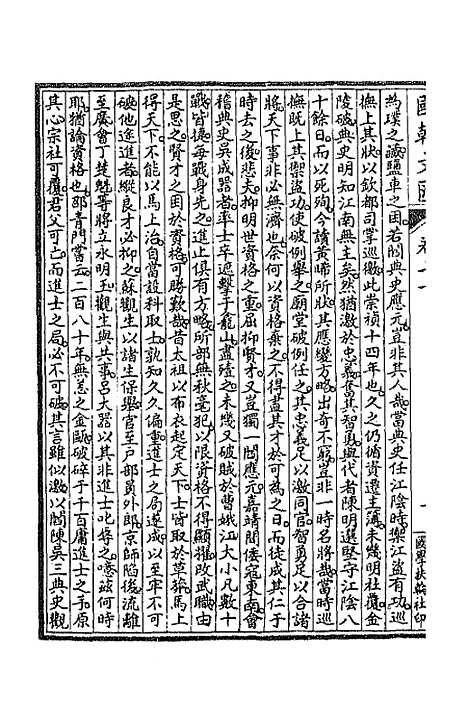 國朝文匯
卷十一
一
國學扶輪社印
為璞之藏鹽車之困若閻典史應元豈非其人哉當典史任江陰時禦江盜有功巡
撫上其狀以欽都司掌巡徼此崇禎十四年也久之仍循資遷主簿未幾明社覆金
陵破典史明知江南無主矣然猶激於忠義奮其智勇與代者陳明選堅守江陰八
十餘日而以死殉今讀黃晞所狀其應變方略出奇不窮豈非一時名將哉當時巡
撫既上其禦盜功使破例舉之廟堂破例任之其忠義足以激同官智勇足以合諸
將天下事非必無濟也奈何以資格棄之不得盡其才於可為之日而徒成其仁于
時去之後悲夫抑明世資格之重屈抑賢才又豈獨一閻應元嘉靖間倭寇東南會
稽典史吳成器者率士卒逆擊于龕山盡殪之未幾又破賊於曹娥江大小凡數十
戰皆捷每戰身先之進止俱有方略所部無秋毫犯以限資格不得顯擢改武職由
是思之賢才之困於資格可勝歎哉昔太祖以布衣起定天下士皆取於草莽馬上
得天下不能以馬上治自當設科取士孰知久久偏重進士之局遂成以至牢不可
破他途進者縱良才必抑之蘇觀生以諸生保舉官至戶部員外郎京師陷後流離
至廣會丁楚魁等將立永明王觀生與共事呂大器以其非進士叱辱之噫茲何時
耶猶論資格也邵青門嘗云二百八十年無恙之金甌破碎于千百庸進士之手原
其心宗社可覆君父可亡而進士之局必不可破其言雖似激以閻陳吳三典史觀